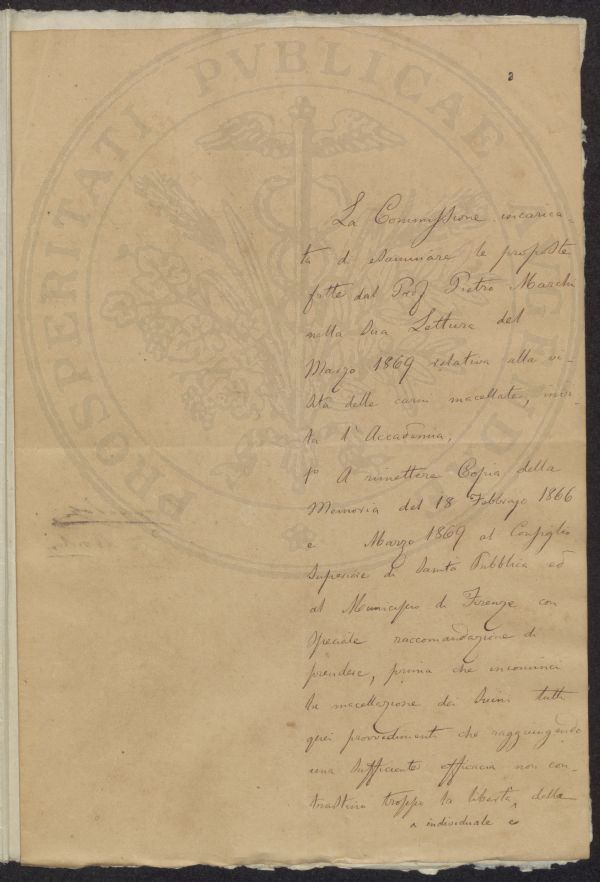 La Commissione incarica-
ta di esaminare le proposte
fatte dal Prof Pietro Marchi
nella Sua Lettura del
Marzo 1869 relativa alla vi-
sita delle carni macellate, invi-
ta l'Accademia,
1º A rimettere Copia della
Memoria del 18 Febbrajo 1866
e Marzo 1869 al Consiglio
Superiore di Sanità Pubblica ed
al Municipio di Firenze con
speciale raccomandazione di
prendere, prima che incominci
la macellazione dei Suini tutti
quei provvedimenti che raggiungendo
una sufficiente efficacia non con-
trastino troppo la libertà ^ della
^ individuale e
PROSPERITATI PVBLICAE